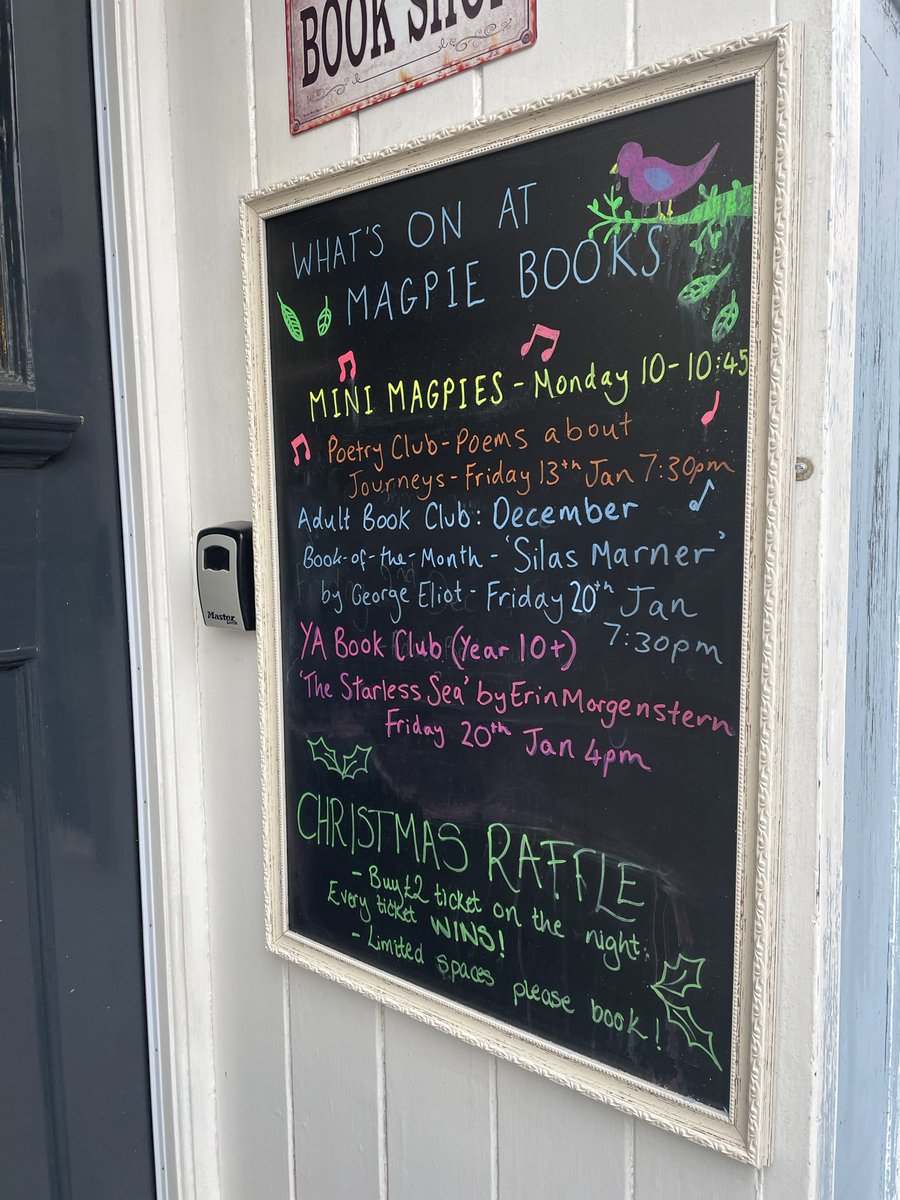 BOOK SHOP
WHAT'S ON AT
MAGPIE BOOKS
MINI MAGPIES - Monday 10-10:45
Poetry Club - Poems about
Journeys - Friday 13th Jan 7:30pm
Adult Book Club: December
Book-of-the-Month - 'Silas Marner'
by George Eliot - Friday 20th Jan
7:30pm
YA Book Club (Year 10+)
'The Starless Sea' by Erin Morgenstern
Friday 20th Jan 4pm
CHRISTMAS RAFFLE
- Buy £2 ticket on the night.
Every ticket WINS!
- Limited spaces please book!
Master
Lock